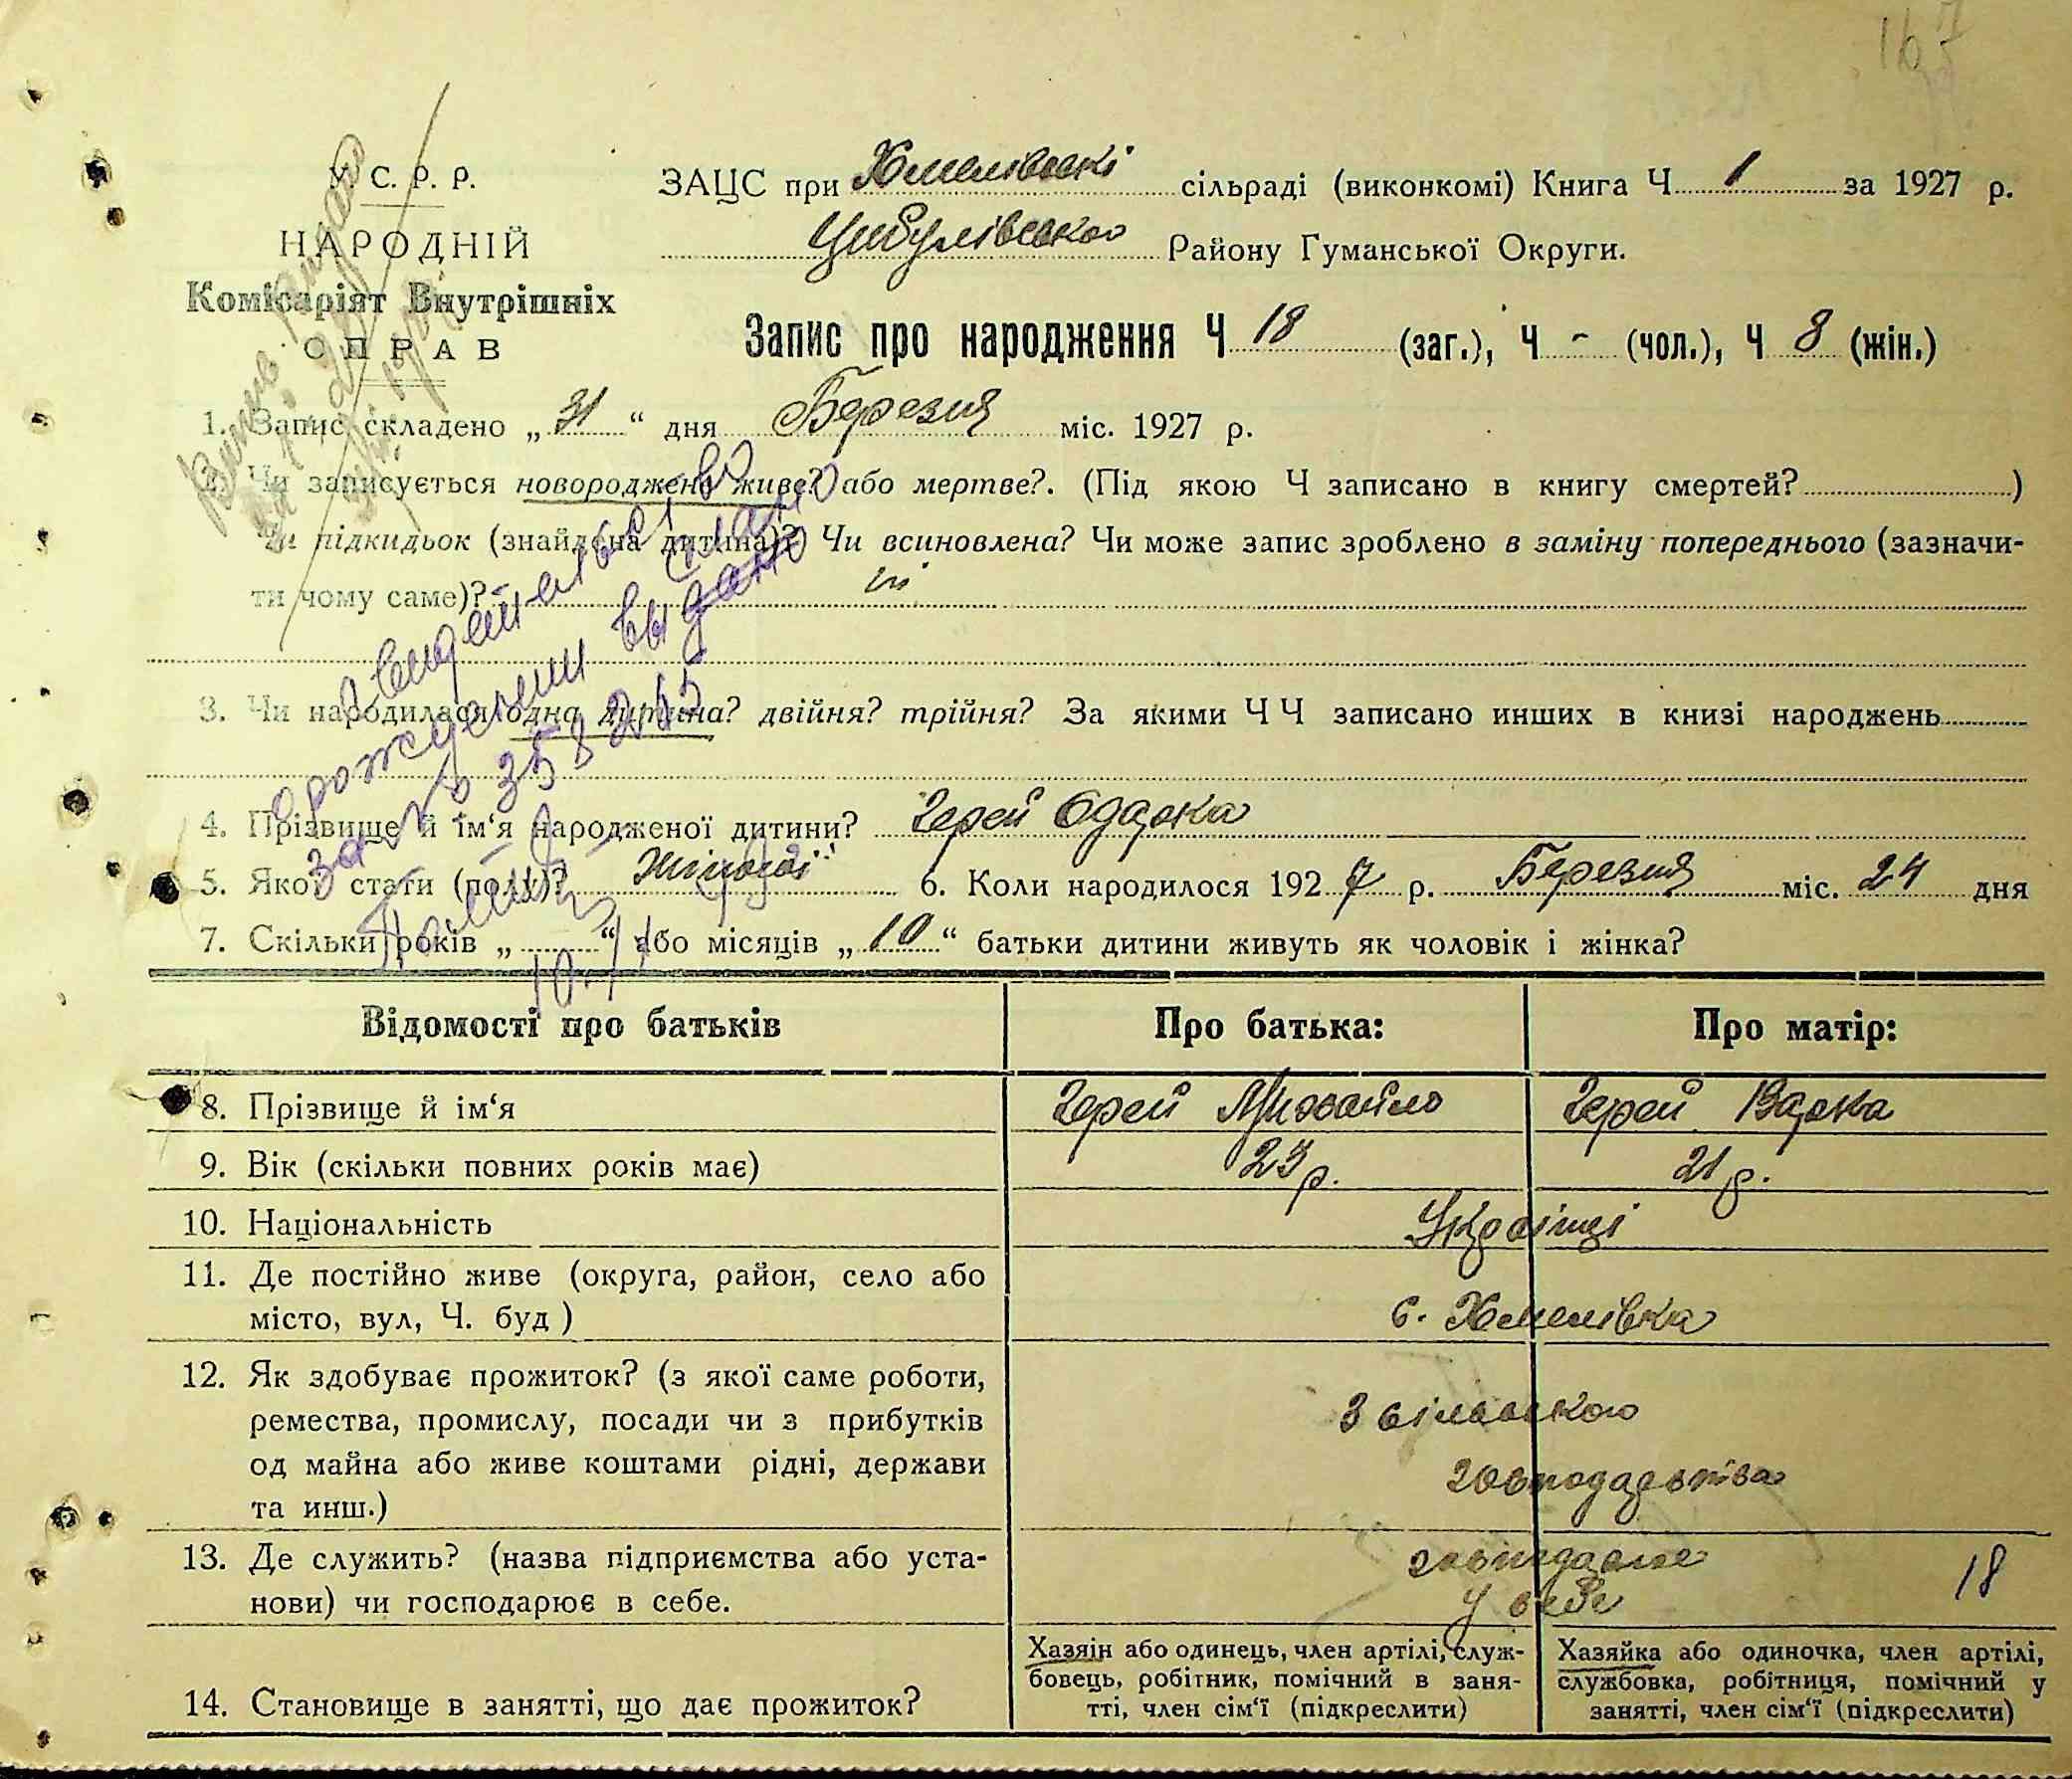 167
У. С. Р. Р.
НАРОДНІЙ
Комісаріят Внутрішніх
СПРАВ
ЗАЦС при Хмелівські сільраді (виконкомі) Книга Ч 1 за 1927 р.
Цибулівського Району Гуманської Округи.
Запис про народження Ч 18 (заг.), Ч - (чол.), Ч 8 (жін.)
1. Запис складено „31“ дня Березня міс. 1927 р.
2. Чи записується новороджене живе? або мертве?. (Під якою Ч записано в книгу смертей? )
Чи підкидьок (знайдена дитина)? Чи всиновлена? Чи може запис зроблено в заміну попереднього (зазначи-
ти чому саме)? ні
3. Чи народилася одна дитина? двійня? трійня? За якими Ч Ч записано инших в книзі народжень
4. Прізвище й ім‘я народженої дитини? Герей Одарка
5. Якої стати (полу)? Жіночої 6. Коли народилося 1927 р. Березня міс. 24 дня
7. Скільки років „ “ або місяців „10“ батьки дитини живуть як чоловік і жінка?
свидетельство
о рождении выдано
358215
Відомості про батьків Про батька: Про матір:
8. Прізвище й ім‘я Герей Михайло Герей Варка
9. Вік (скільки повних років має) 23 р. 21 р.
10. Національність Українці
11. Де постійно живе (округа, район, село або
місто, вул, Ч. буд ) с. Хмелівка
12. Як здобуває прожиток? (з якої саме роботи,
ремества, промислу, посади чи з прибутків
од майна або живе коштами рідні, держави
та инш.)
З сільського
господарства
13. Де служить? (назва підприємства або уста-
нови) чи господарює в себе.
господарює
у себе
18
14. Становище в занятті, що дає прожиток?
Хазяїн або одинець, член артілі, служ-
бовець, робітник, помічний в заня-
тті, член сім‘ї (підкреслити)
Хазяйка або одиночка, член артілі,
службовка, робітниця, помічний у
занятті, член сім‘ї (підкреслити)